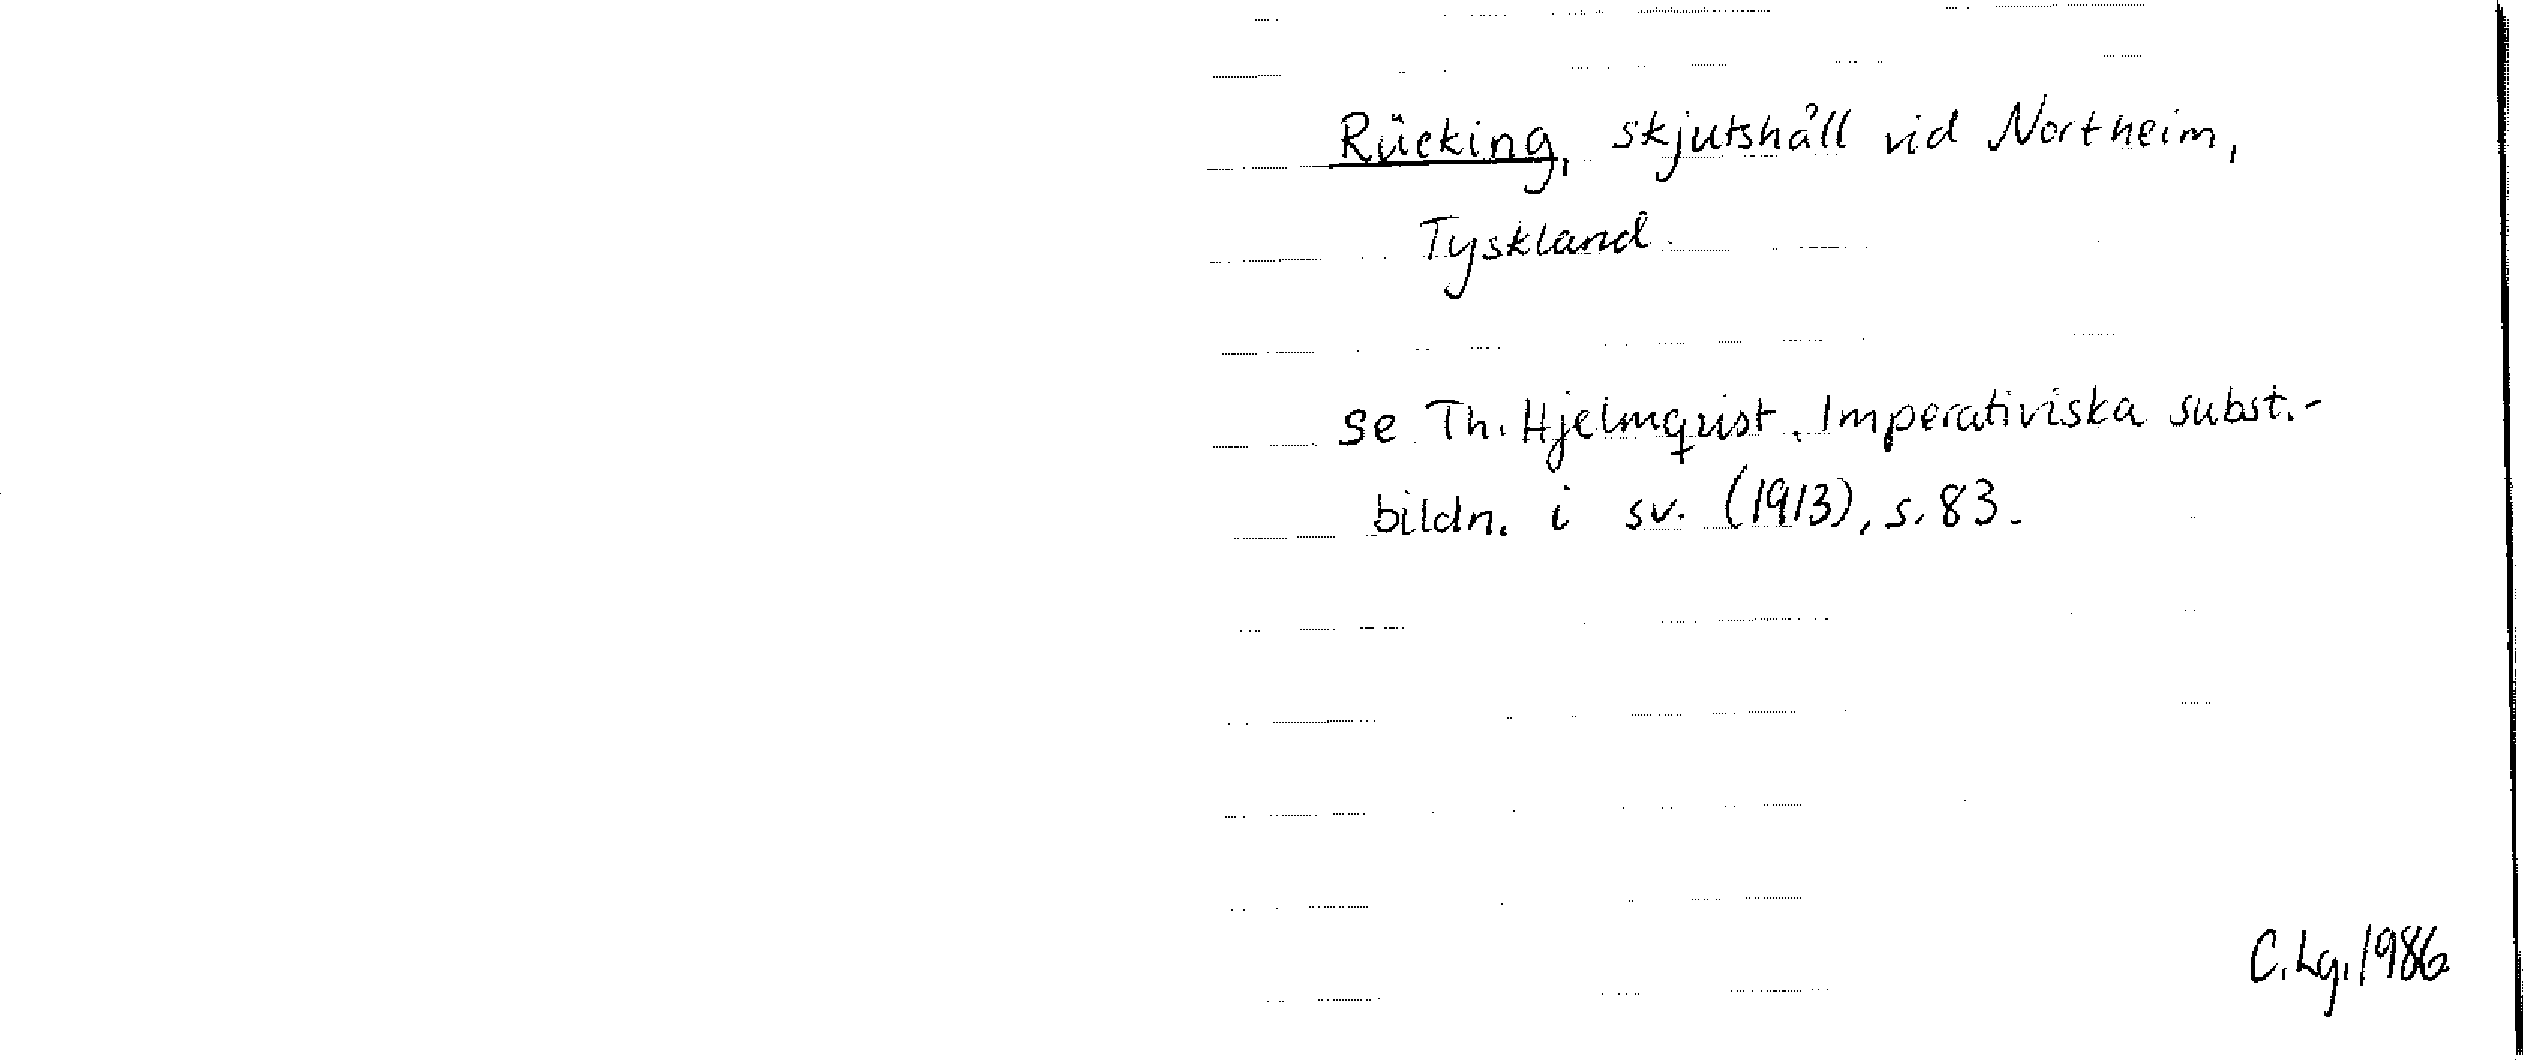 Rücking, skjutshåll vid Northeim,
Tyskland.
se Th. Hjelmqvist, Imperativiska subst.-
bildn. i sv. (1913), s. 83.
C. Lg. 1986